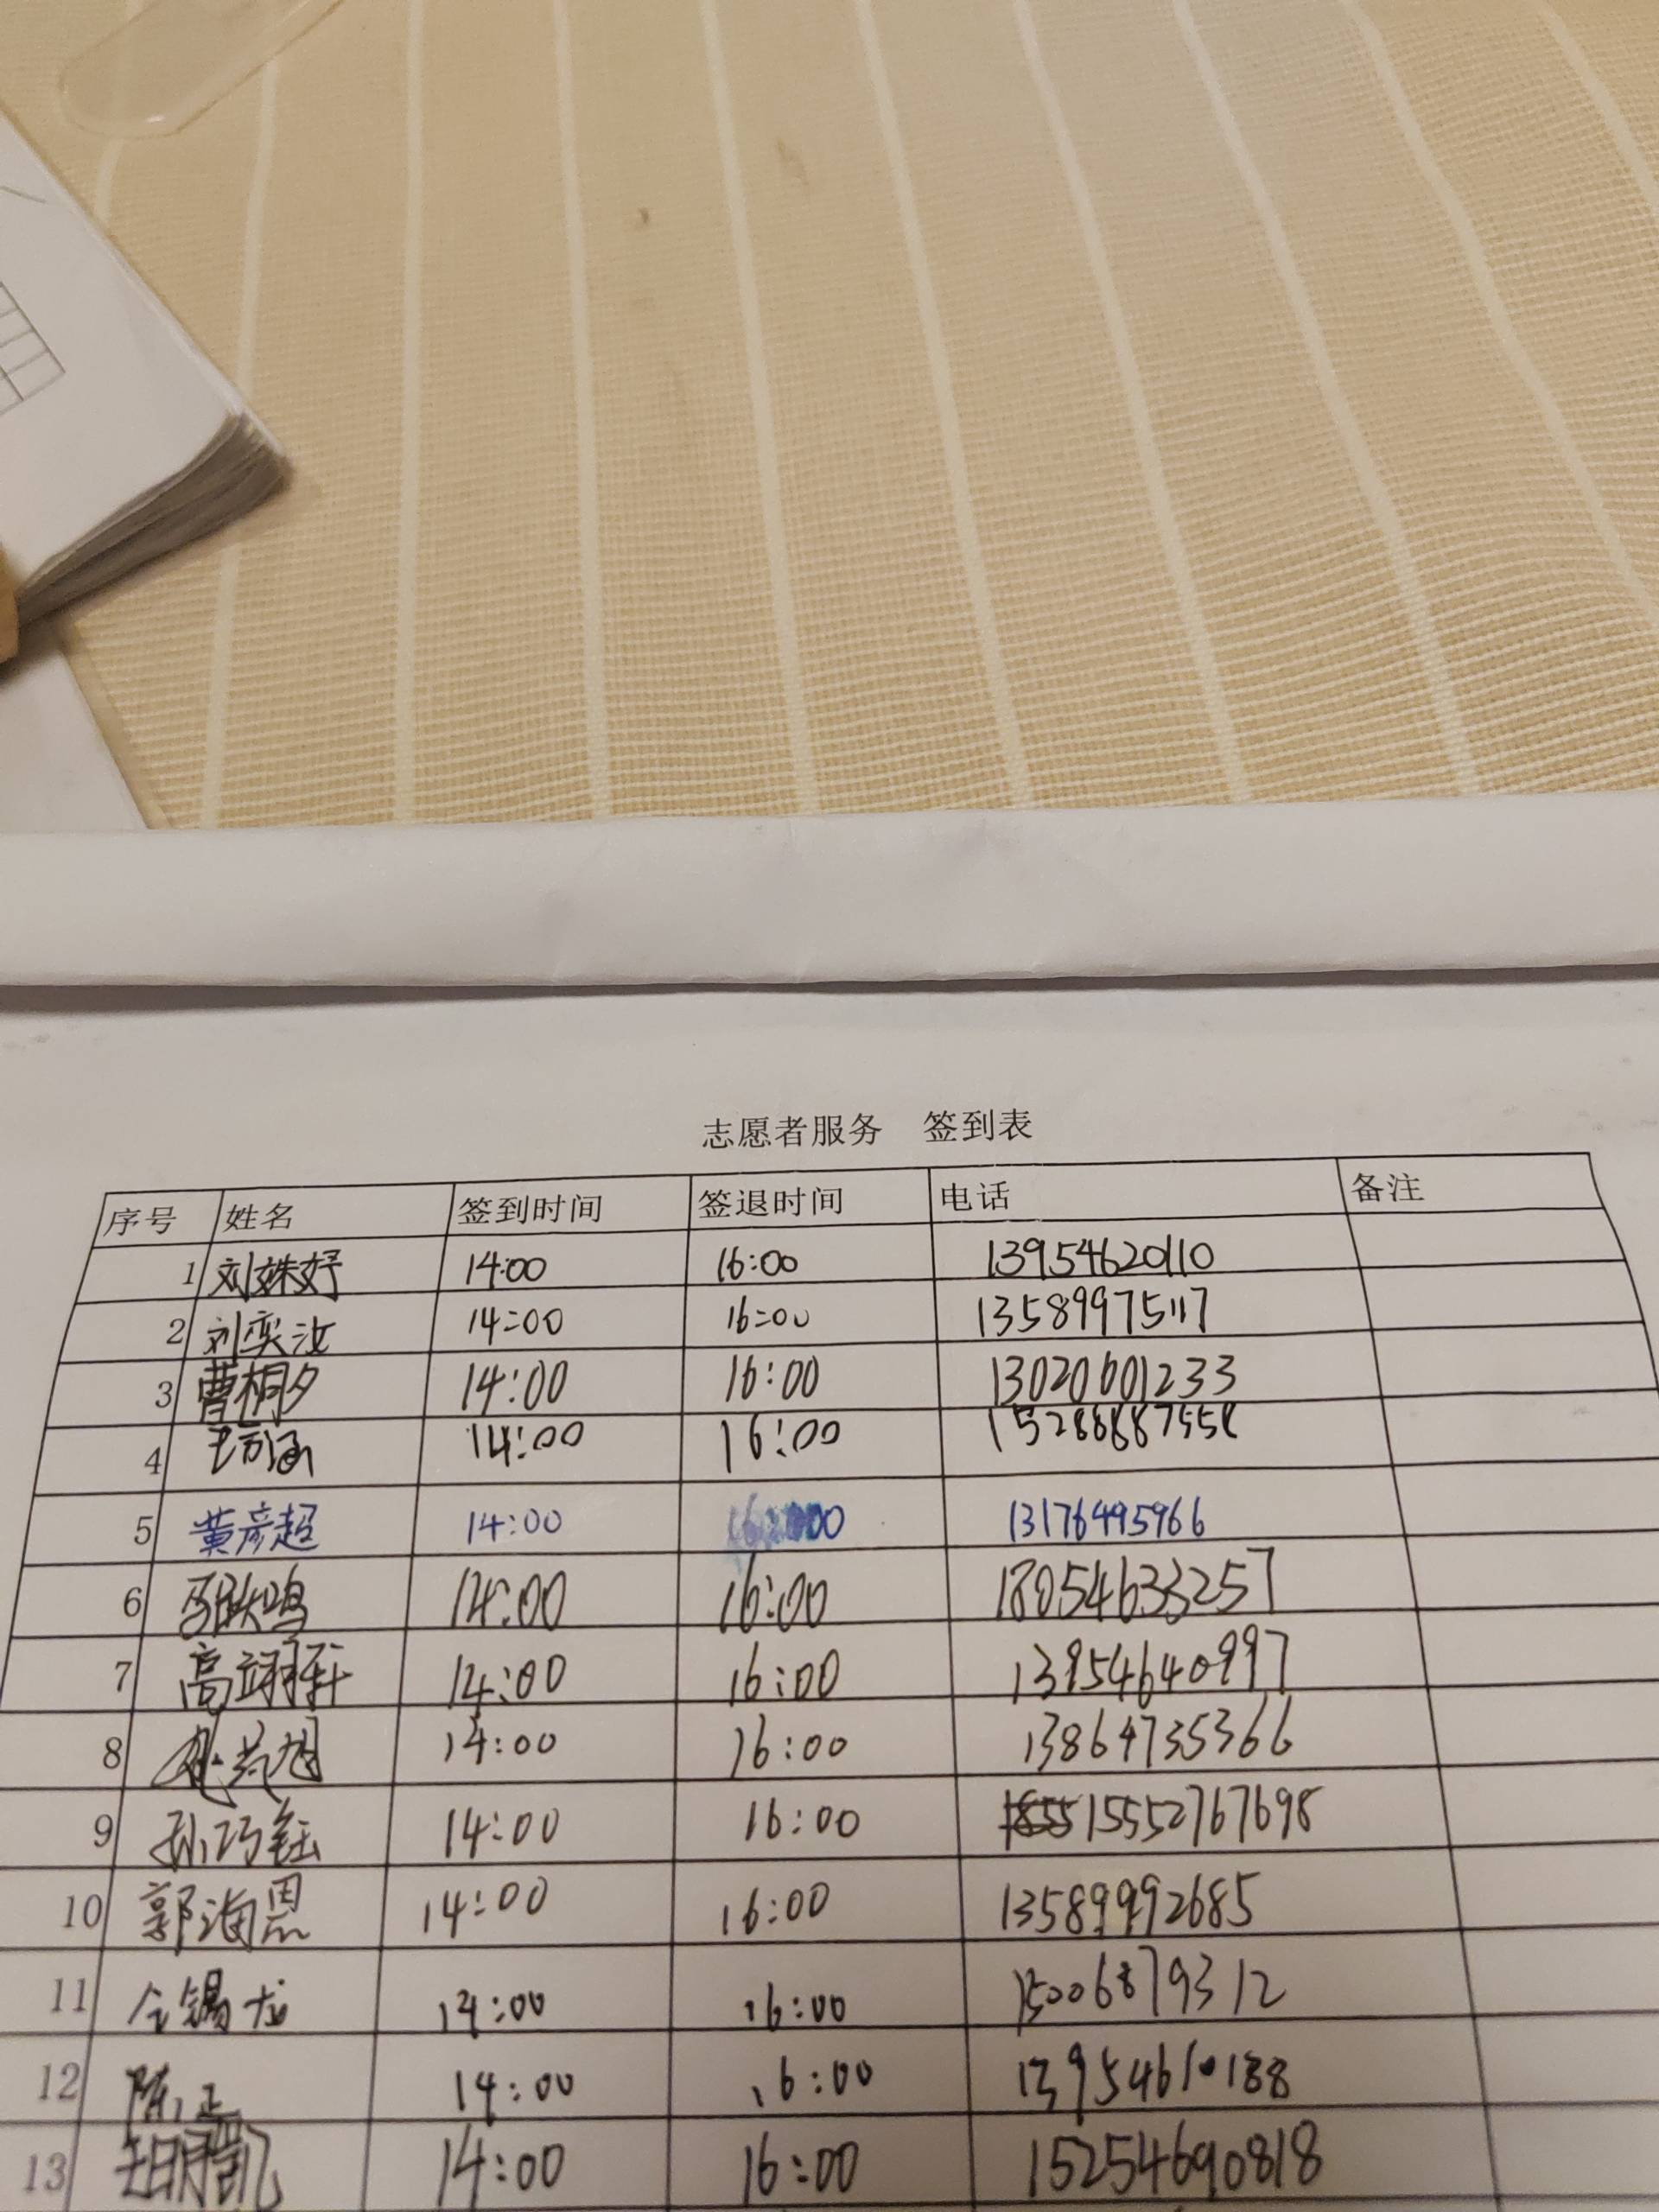 志愿者服务 签到表
序号 姓名 签到时间 签退时间 电话 备注
1 刘姝妤 14:00 16:00 13954620110
2 刘奕汝 14:00 16:00 13589975117
3 曹桐夕 14:00 16:00 13020601233
4 14:00 16:00
5 黄彦超 14:00 16:00 13176495966
6 14:00 16:00 18054633257
7 高翊轩 14:00 16:00 13954640997
8 14:00 16:00 13864735366
9 孙巧钰 14:00 16:00 15552767698
10 郭海恩 14:00 16:00 13589992685
11 仝锡龙 14:00 16:00 15006879312
12 陈正 14:00 16:00 13954610188
13 14:00 16:00 15254690818